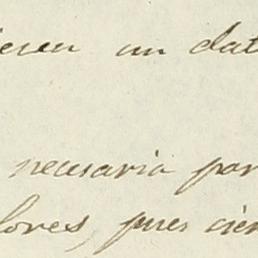 un dat
necesaria par
lores, pues cien